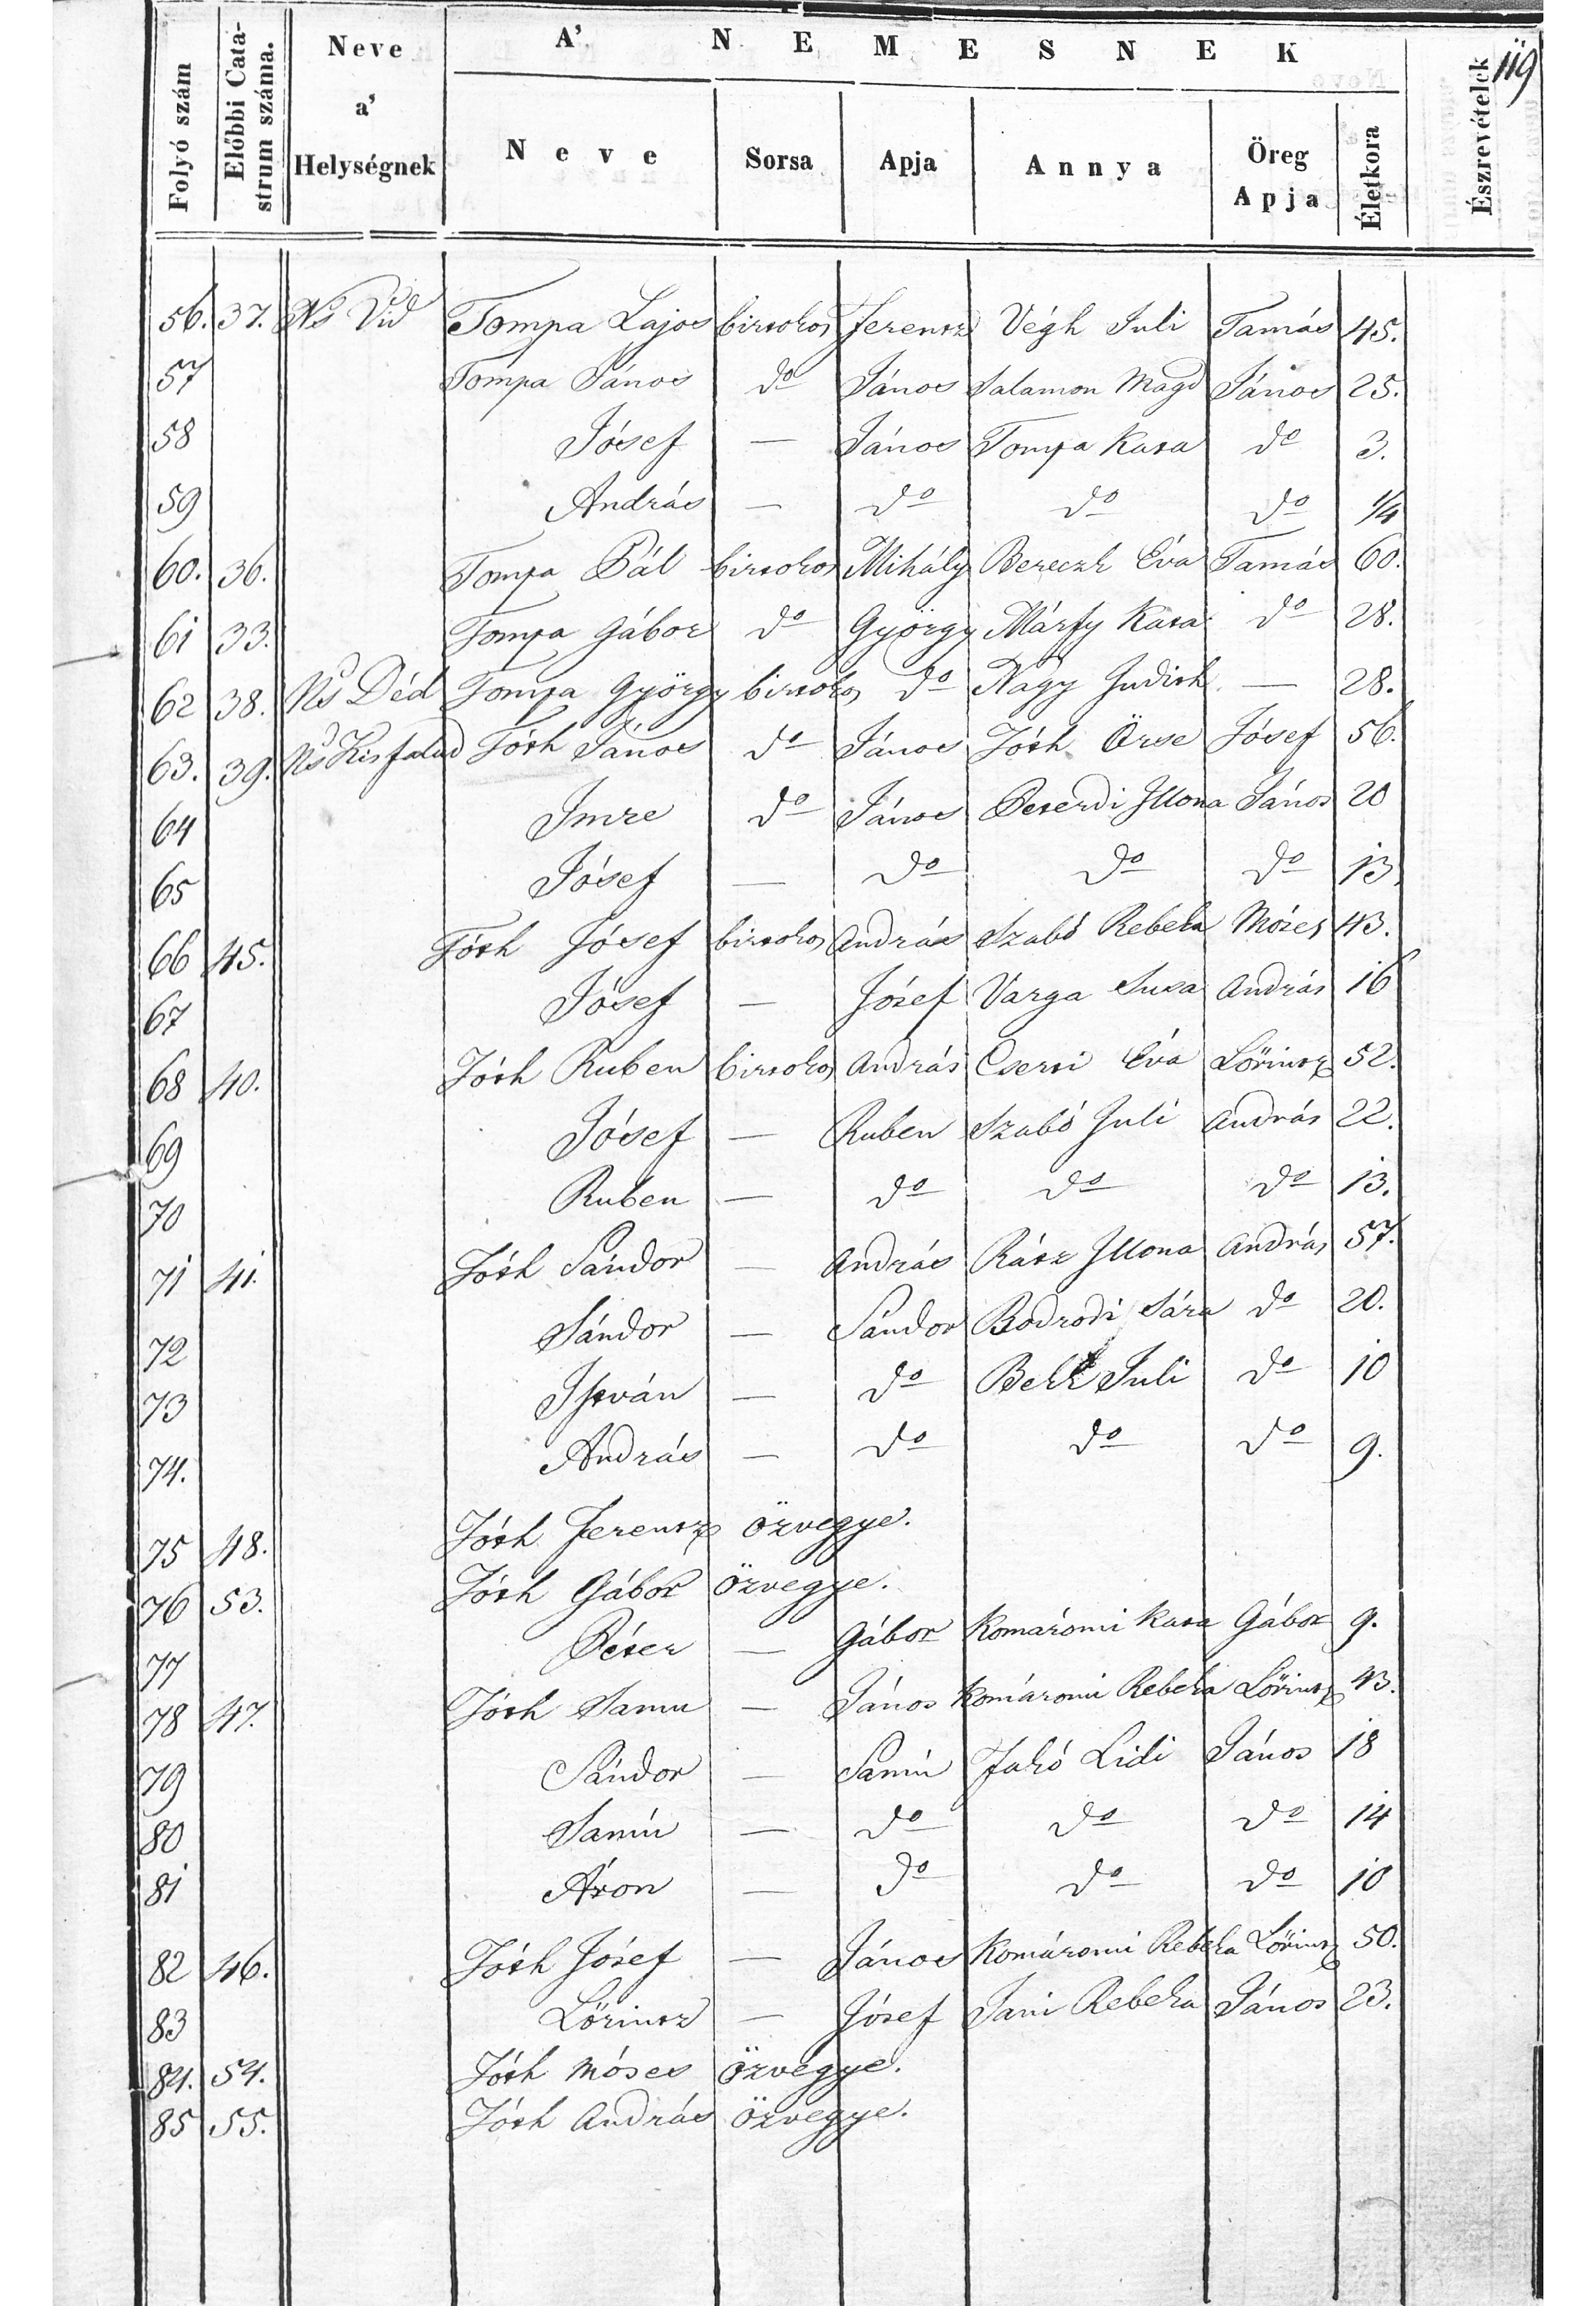 119
Folyó szám | Előbbi Catastrum száma. | Neve a' Helységnek | A' NEMESNEK | Észrevételek
Neve | Sorsa | Apja | Annya | Öreg Apja | Életkora
56. 37. Ns Vid Tompa Lajos birtokos Ferentz Végh Juli Tamás 45.
57 Tompa János do János Salamon Magd János 25.
58 Jósef — János Tompa Kata do 3.
59 András — do do do 1/4
60. 36. Tompa Pál birtokos Mihály Bereczk Éva Tamás 60.
61 33. Tompa Gábor do György Márfy Kata do 28.
62 38. Ns Déd Tompa György birtokos do Nagy Judith — 28.
63. 39. Ns Kisfalud Tóth János do János Tóth Örse Jósef 56.
64 Imre do János Peterdi Illona János 20
65 Jósef — do do do 13.
66 45. Tóth Jósef birtokos András Szabó Rebeka Mózes 43.
67 Jósef — Józef Varga Susa András 16
68 40. Tóth Ruben birtokos András Cserti Éva Lörintz 52.
69 Jósef — Ruben Szabó Juli András 22.
70 Ruben — do do do 13.
71 41. Tóth Sándor — András Rátz Illona András 57.
72 Sándor — Sándor Bodrodi Sára do 20.
73 István — do Bekk Juli do 10
74. András — do do do 9.
75 48. Tóth Ferentz özvegye.
76 53. Tóth Gábor özvegye.
77 Péter — Gábor Komáromi Kata Gábor 9.
78 47. Tóth Samu — János Komáromi Rebeka Lörintz 43.
79 Sándor — Samú Jakó Lidi János 18
80 Samú — do do do 14
81 Áron — do do do 10
82 46. Tóth Józef — János Komáromi Rebeka Lörintz 50.
83 Lörintz — Jósef Jani Rebeka János 23.
84. 54. Tóth Móses özvegye.
85 55. Tóth András özvegye.